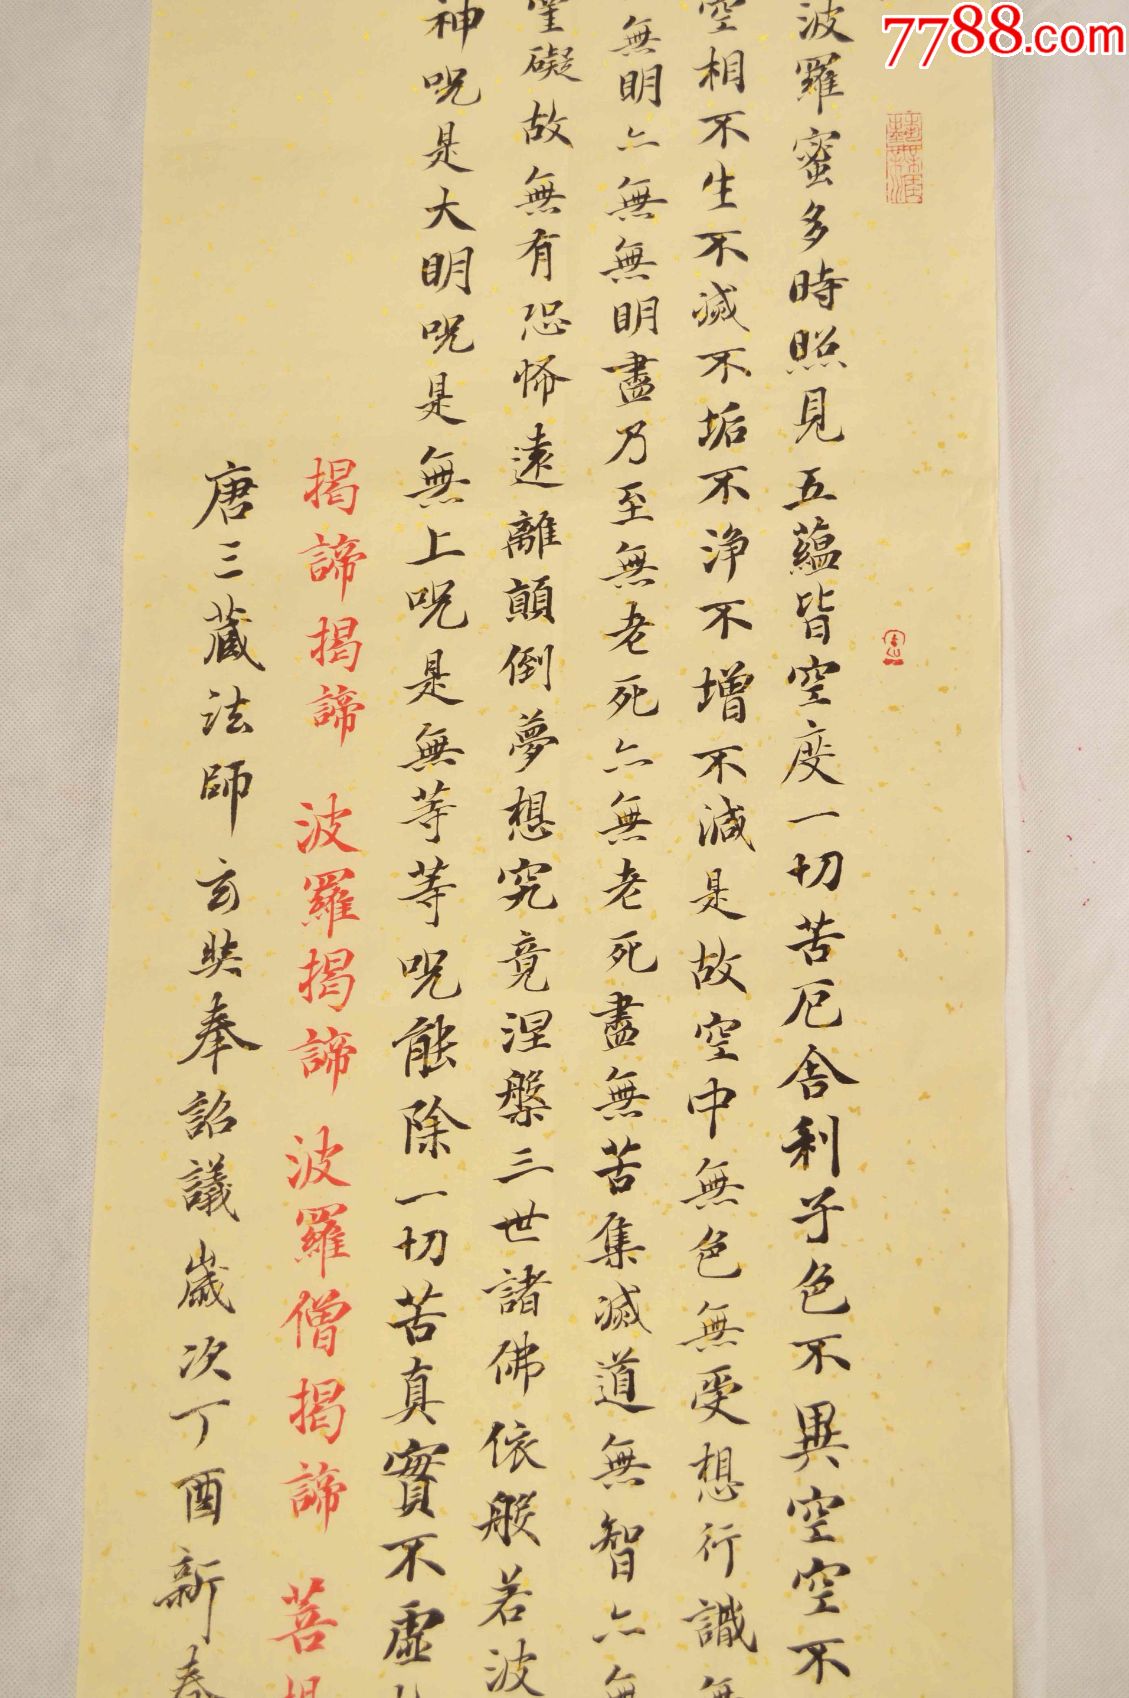 7788.com
波羅蜜多時照見五蘊皆空度一切苦厄舎利子色不異空空不
空相不生不滅不垢不浄不增不減是故空中無色無受想行識無
無明亦無無明盡乃至無老死亦無老死盡無苦集滅道無智亦無
罣礙故無有恐怖遠離顛倒夢想究竟涅槃三世諸佛依般若波
神呪是大明呪是無上呪是無等等呪能除一切苦真實不虛
揭諦揭諦 波羅揭諦 波羅僧揭諦 菩提
唐三藏法師玄奘奉詔議歲次丁酉新春